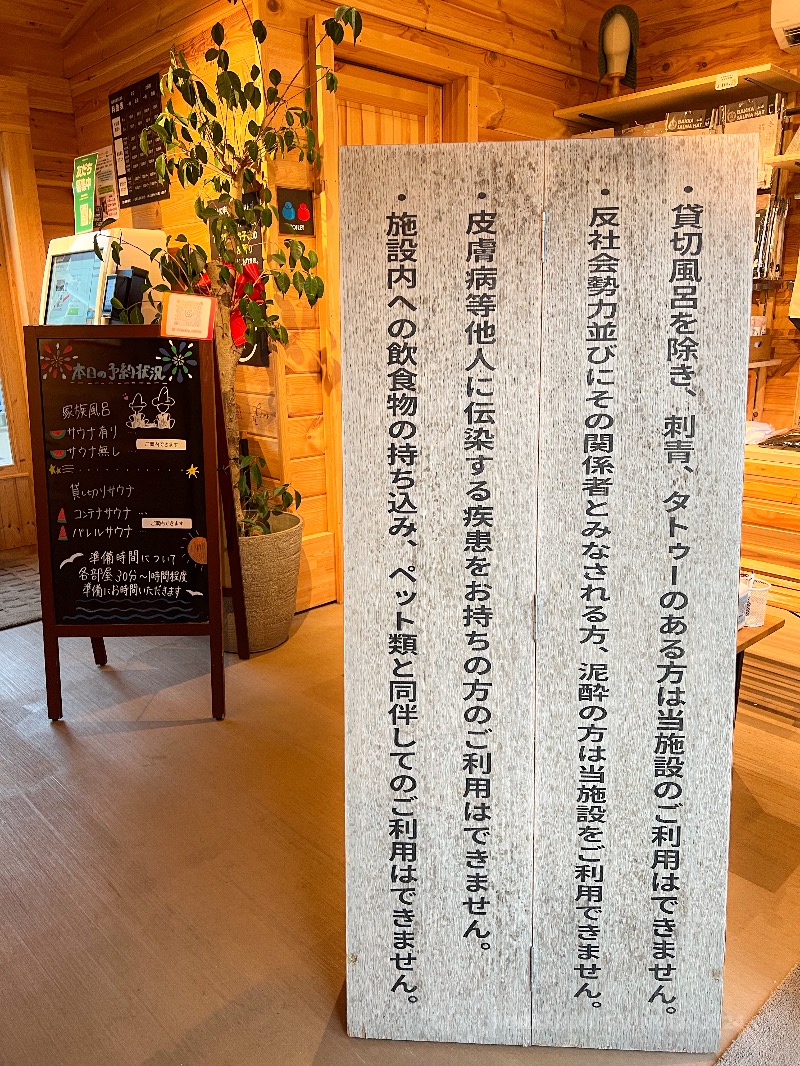 ・貸切風呂を除き、刺青、タトゥーのある方は当施設のご利用はできません。
・反社会勢力並びにその関係者とみなされる方、泥酔の方は当施設をご利用できません。
・皮膚病等他人に伝染する疾患をお持ちの方のご利用はできません。
・施設内への飲食物の持ち込み、ペット類と同伴してのご利用はできません。
本日の予約状況
家族風呂
サウナ有り
サウナ無し
ご案内できます
貸し切りサウナ
コンテナサウナ …
バレルサウナ
ご案内できます
準備時間について
各部屋30分〜1時間程度
準備にお時間いただきます
友だち募集中
TOILET
SAKKA SAUNA HAT